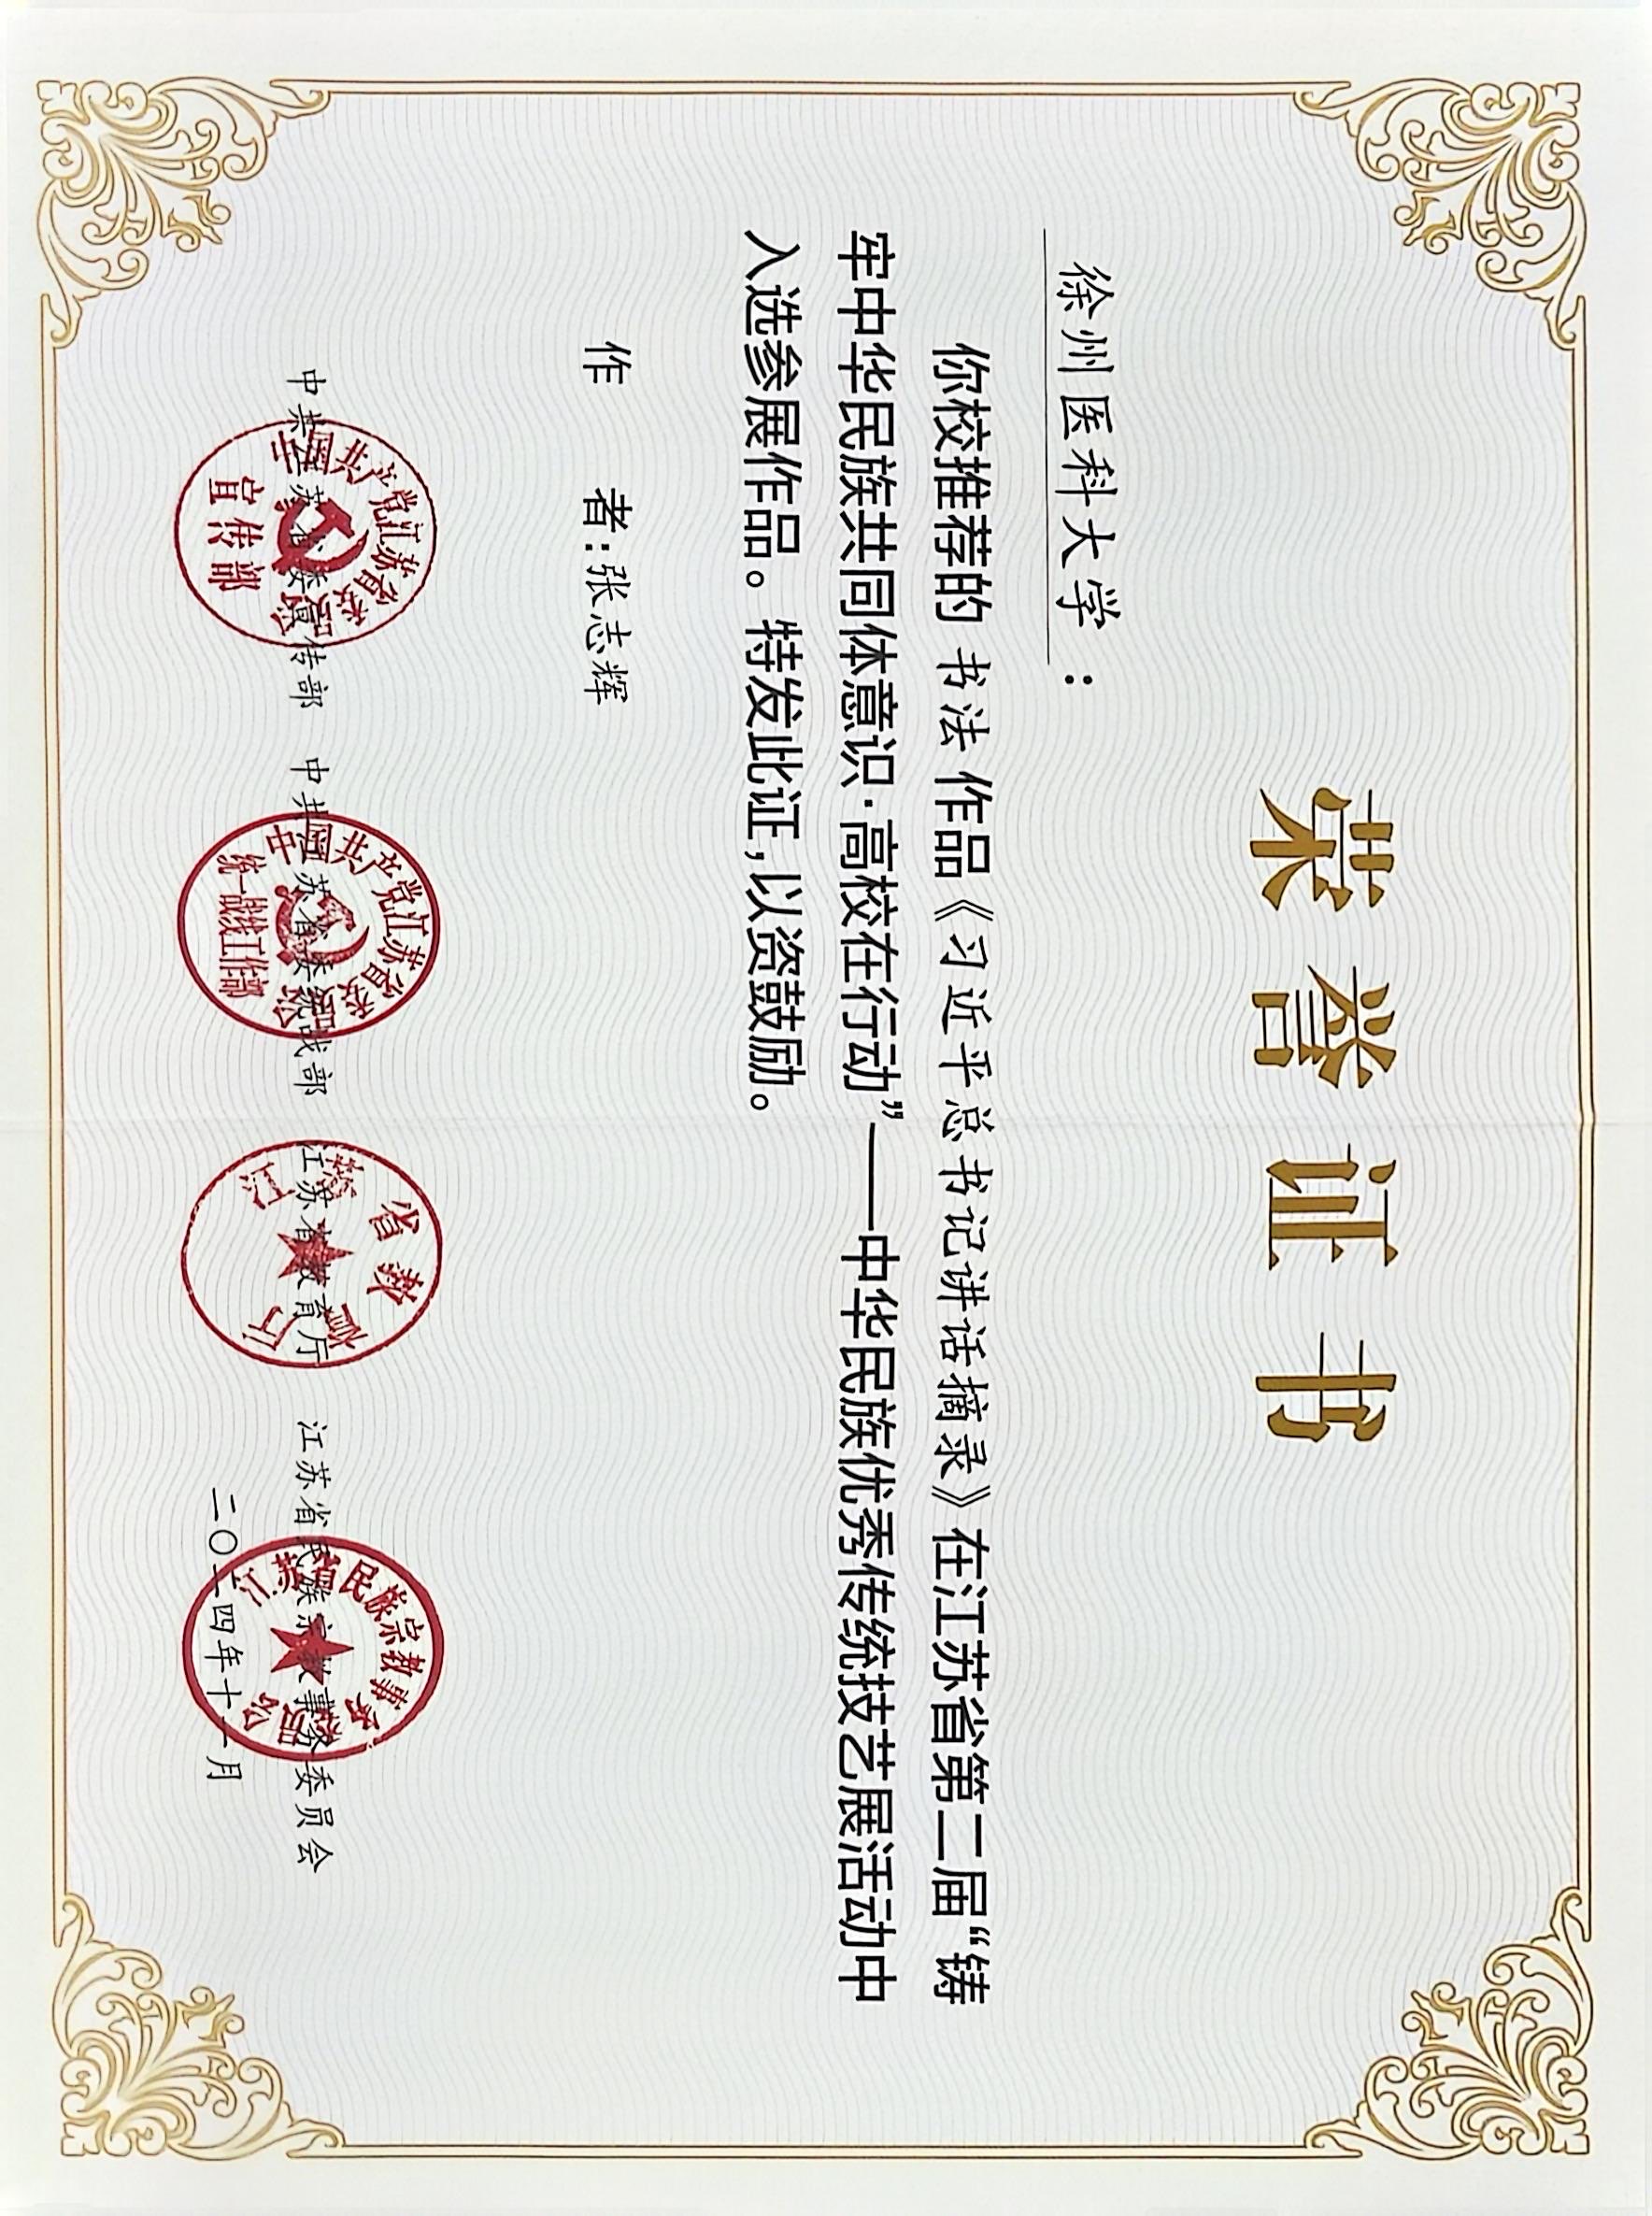 荣誉证书
徐州医科大学：
你校推荐的 书法 作品《习近平总书记讲话摘录》在江苏省第二届“铸
牢中华民族共同体意识·高校在行动”——中华民族优秀传统技艺展活动中
入选参展作品。特发此证，以资鼓励。
作 者：张志辉
中共江苏省委宣传部 中共江苏省委统战部 江苏省教育厅 江苏省民族宗教事务委员会
二〇二四年十一月
中国共产党江苏省委员会
宣传部
中国共产党江苏省委员会
统一战线工作部
江苏省教育厅
江苏省民族宗教事务委员会